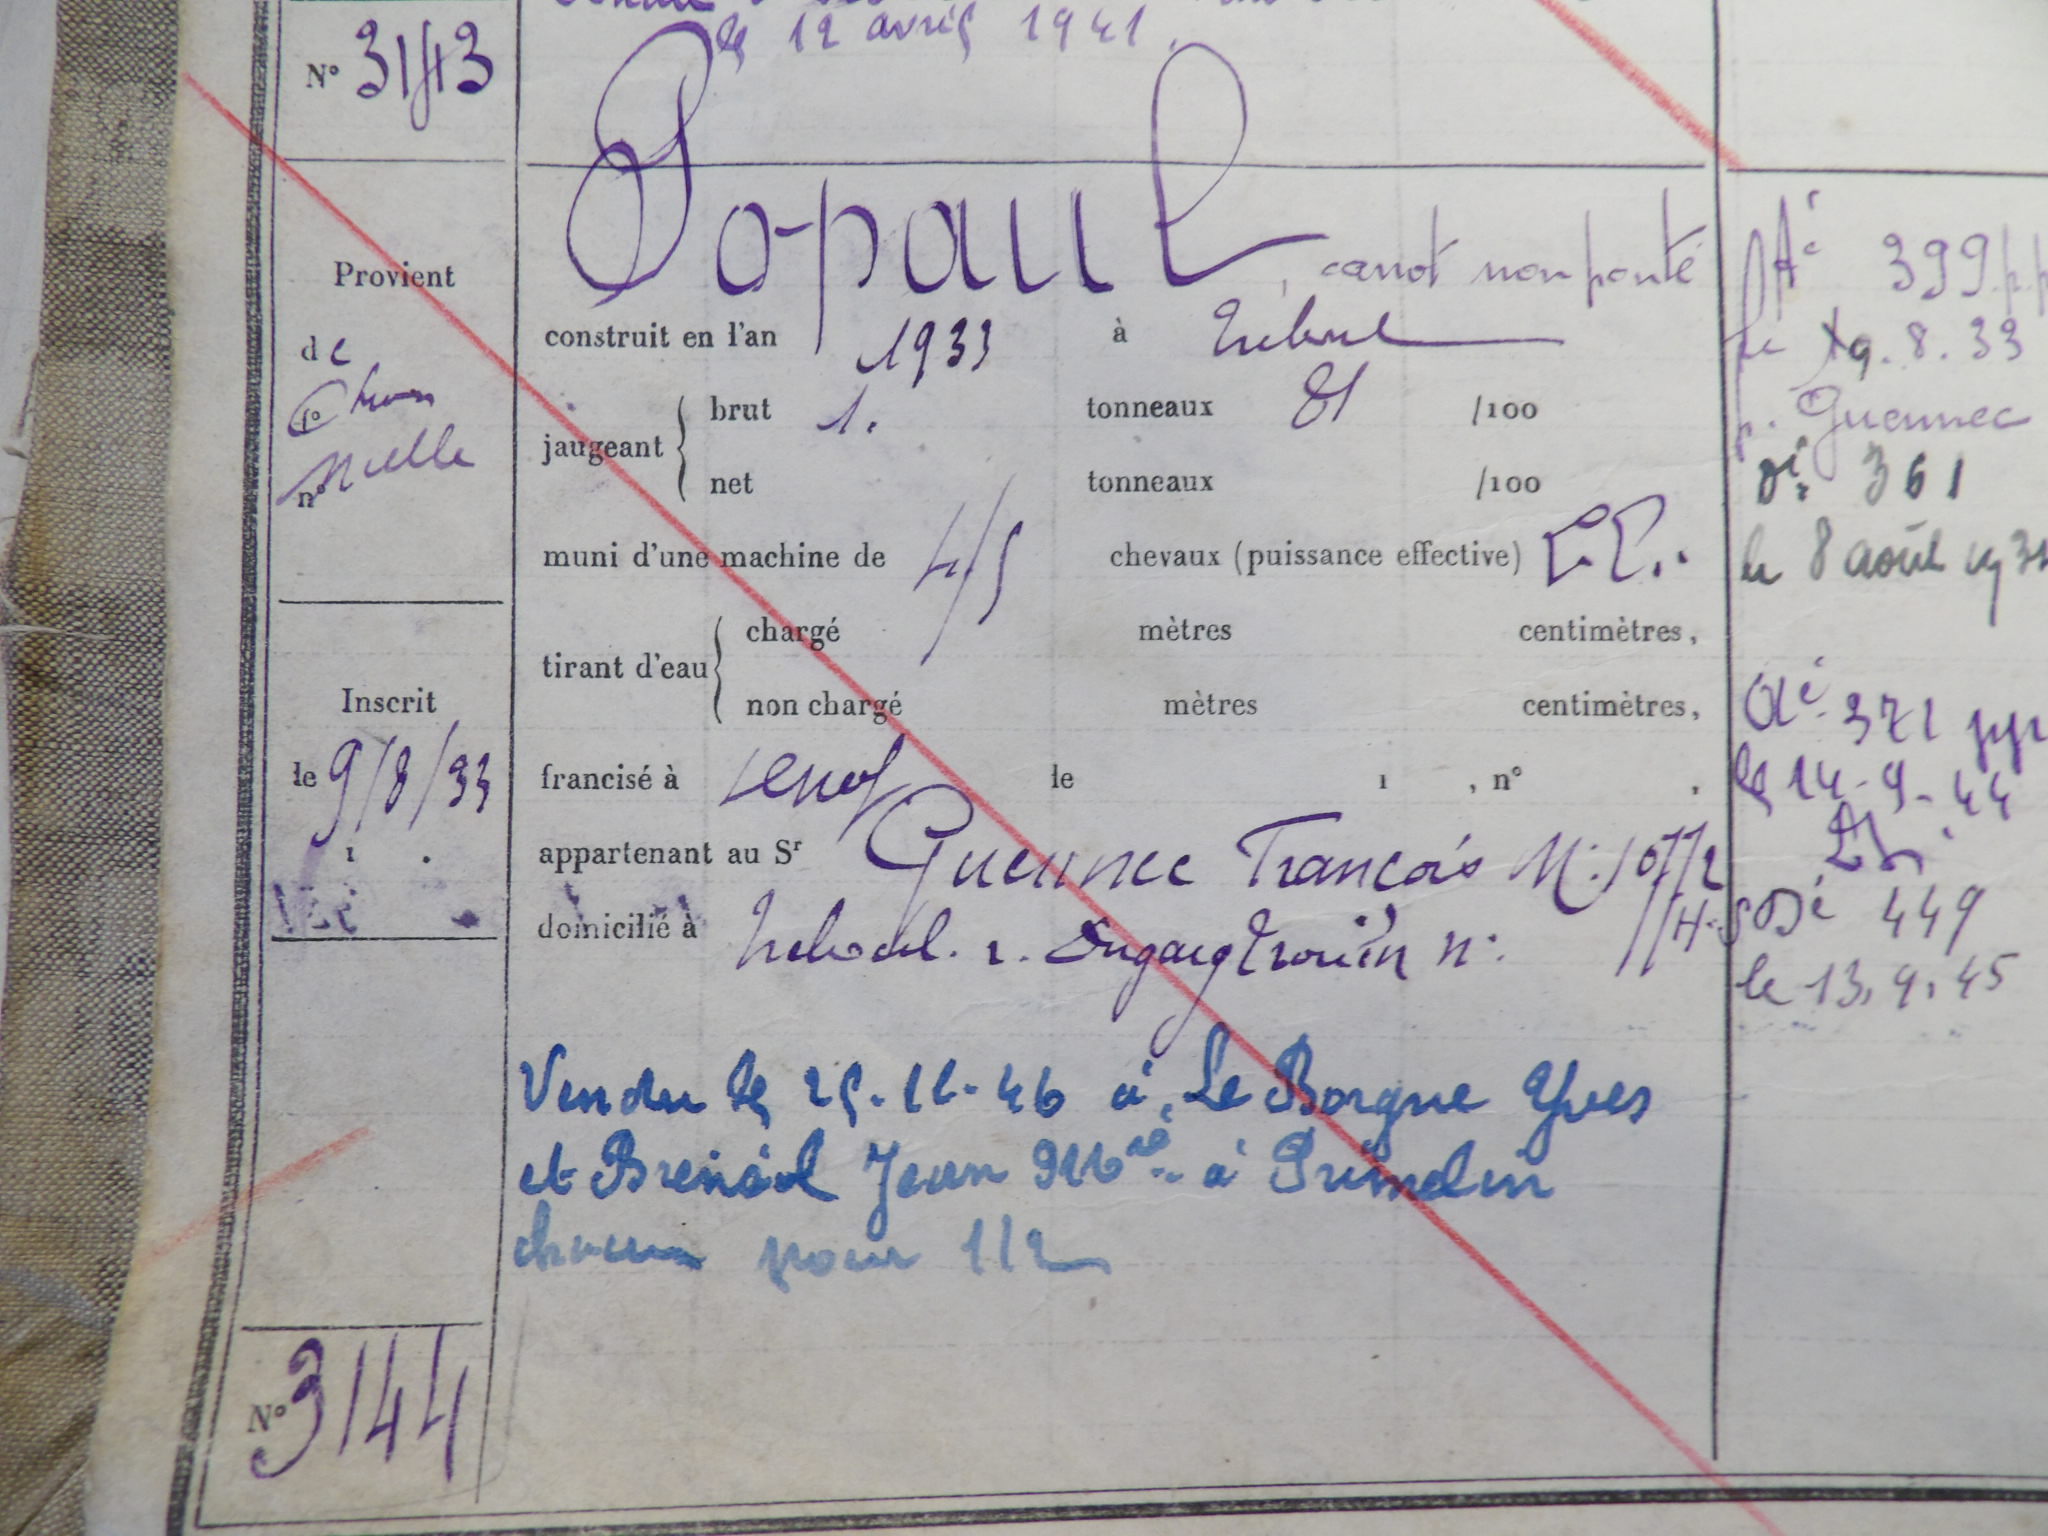 le 12 avril 1941.
N° 3143
Po-paul, canot non ponté
Provient
de
n°
construit en l'an 1933 à Treboul
jaugeant brut 1. tonneaux 81 /100
net tonneaux /100
muni d'une machine de 4/5 chevaux (puissance effective)
tirant d'eau chargé mètres centimètres,
non chargé mètres centimètres,
Inscrit
le 9/8/33
1 .
francisé à le 1 , n° ,
appartenant au Sr Guennec François
domicilié à Treboul. r. Dugay trouin n°
Vendu le 25-11-46 à Le Borgne Yves
et Jean à Primelin
chacun pour 1/2
N° 3144
Até 399
le 19.8.33
p. Guennec
361
le 8 août
371
le 14-9-44
449
le 13.9.45